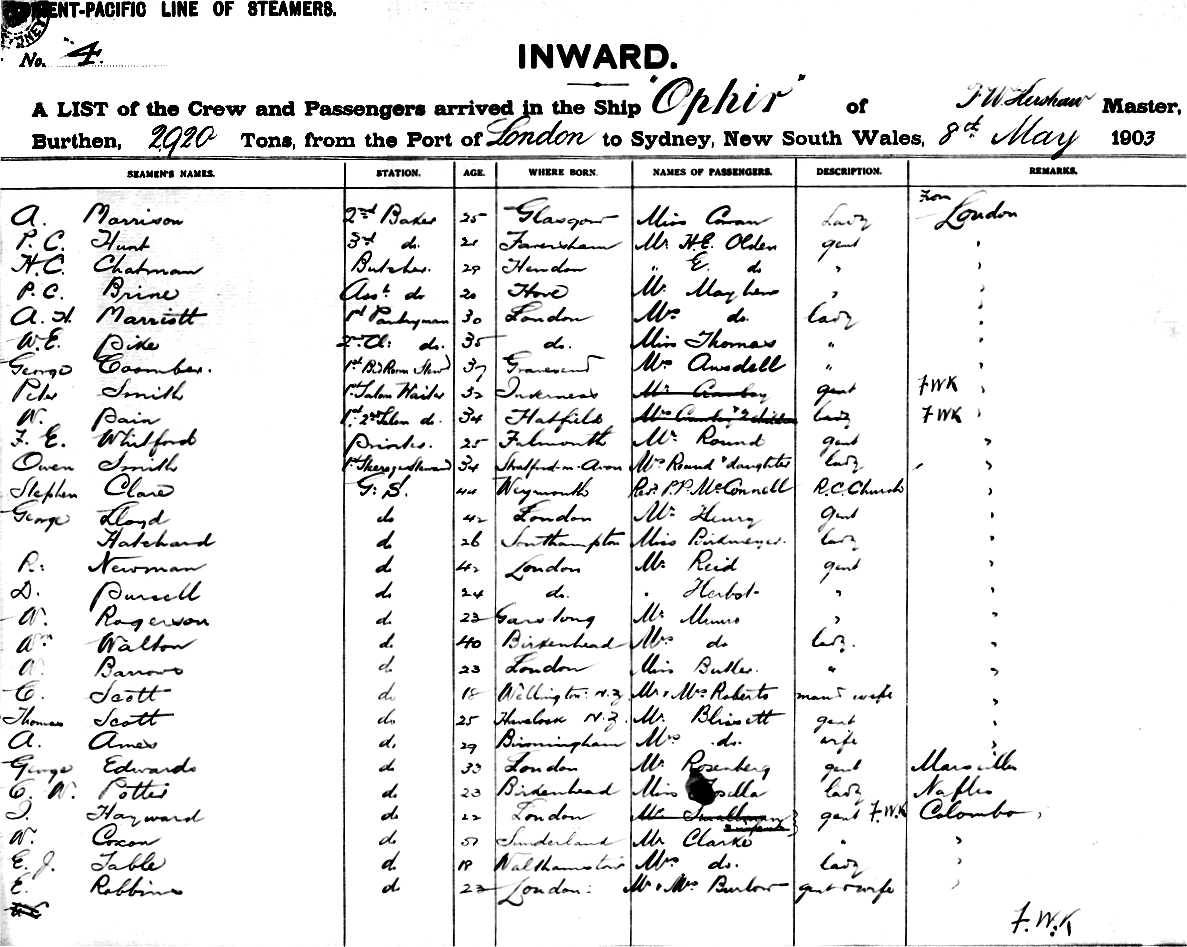 ENT-PACIFIC LINE OF STEAMERS.
No. 4.
INWARD.
A LIST of the Crew and Passengers arrived in the Ship "Ophir" of F W Kershaw Master,
Burthen, 2920 Tons, from the Port of London to Sydney, New South Wales, 8th May 1903
SEAMEN'S NAMES. STATION. AGE. WHERE BORN. NAMES OF PASSENGERS. DESCRIPTION. REMARKS.
From
A. Marrison 2nd Baker 25 Glasgow Miss Cowan Lady London
P. C. Hunt 3rd do. 21 Faversham Mr. H.E. Olden gent "
H.C. Chatman Butcher. 29 Hendon " E. do " "
P. C. Brine Asst. do 20 Hove Mr. Mayhew " "
A. H. Marriott 1st Pantryman 30 London Mrs do. lady "
W.E. Pike 2nd Cl: do. 35 do. Miss Thomas " "
George Coomber. 1st B'd Room Stew'd 37 Gravesend Mrs Ansdell " "
Peter Smith 1st Saloon Waiter 32 Inverness Mr gent FWK "
W. Pain 1st 2nd Saloon do. 34 Hatfield Mrs & 2 children lady FWK "
F. E. Whitford Drinks. 25 Falmouth Mr. Round gent "
Owen Smith 34 Stratford-on-Avon Mrs Round & daughter lady "
Stephen Clare G. S. 44 Weymouth Rev. P.P. McConnell R.C. Church "
George Lloyd do 42 London Mr. Henry gent "
Hatchard do 26 Southampton Miss Birkmeyer. lady "
R. Newman do 42 London Mr. Reid gent "
D. Pursell do 24 do. " Herbst " "
W. Rogerson do 22 Garstong Mr. Munro " "
Wm Walton do. 40 Birkenhead Mrs do lady. "
W. Barrows do 23 London Miss Butler. " "
C. Scott do 18 Wellington N.Z Mr & Mrs Roberts man & wife
Thomas Scott do. 25 Havelock N.Z. Mr. Blissett gent "
A. Ames do. 29 Birmingham Mrs do. wife "
George Edwards do 33 London Mr. Rosenberg gent Marseilles
C. W. Potter do 23 Birkenhead Miss lady Naples
Hayward do 22 London Mr Smallman gent F.W.K Colombo
2 infants
W. Coxon do 51 Sunderland Mr Clarke " "
E. J. Table do. 18 Walthamstow Mrs do. lady "
E. Robbins do 22 London: Mr & Mrs Burlow gent & wife "
F.W.K